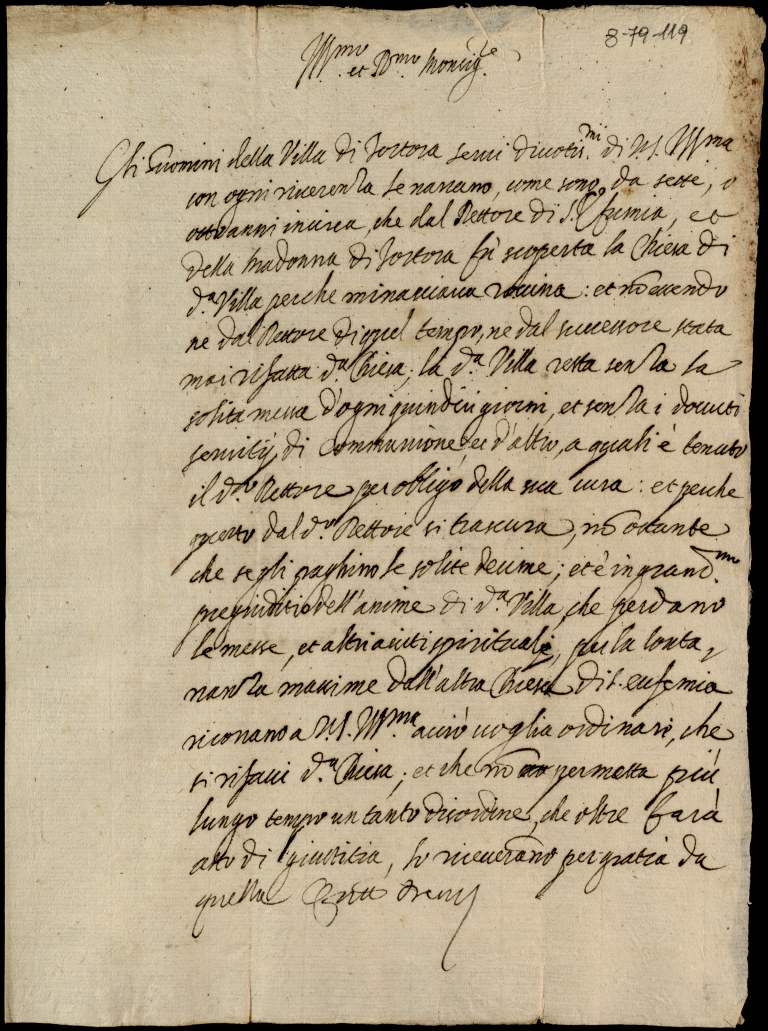 8-79-119
Ill.mo
et R.mo Monsig.re
Gli huomini della Villa di Tortora serui diuotis.mi di V.S. Ill.ma
con ogni riuerenza le narrano, come sono da sette, o
otto anni in circa, che dal Rettore di S. Eufemia, et
della Madonna di Tortora fù scoperta la Chiesa di
d.a Villa perche minacciaua rouina: et nõ essendo
ne dal Rettore di quel tempo, ne dal successore stata
mai rifatta d.a Chiesa, la d.a Villa resta senza la
solita messa d'ogni quindici giorni, et senza i douuti
seruitij di Communione, et d'altro, a quali è tenuto
il d.o Rettore per obligo della sua cura: et perche
questo dal d.o Rettore si trascura, nõ ostante
che se gli paghino le solite decime; et è in grand.mo
pregiuditio dell'anime di d.a Villa, che perdano
le messe, et altri aiuti spirituali, per la lonta,
nanza massime dall'altra Chiesa di S. eufemia
ricorrano a V.S. Ill.ma acciò uoglia ordinare, che
si rifacci d.a Chiesa; et che nõ permetta più
lungo tempo un tanto disordine, che oltre farà
atto di giustitia, lo riceuerano per gratia da
quella